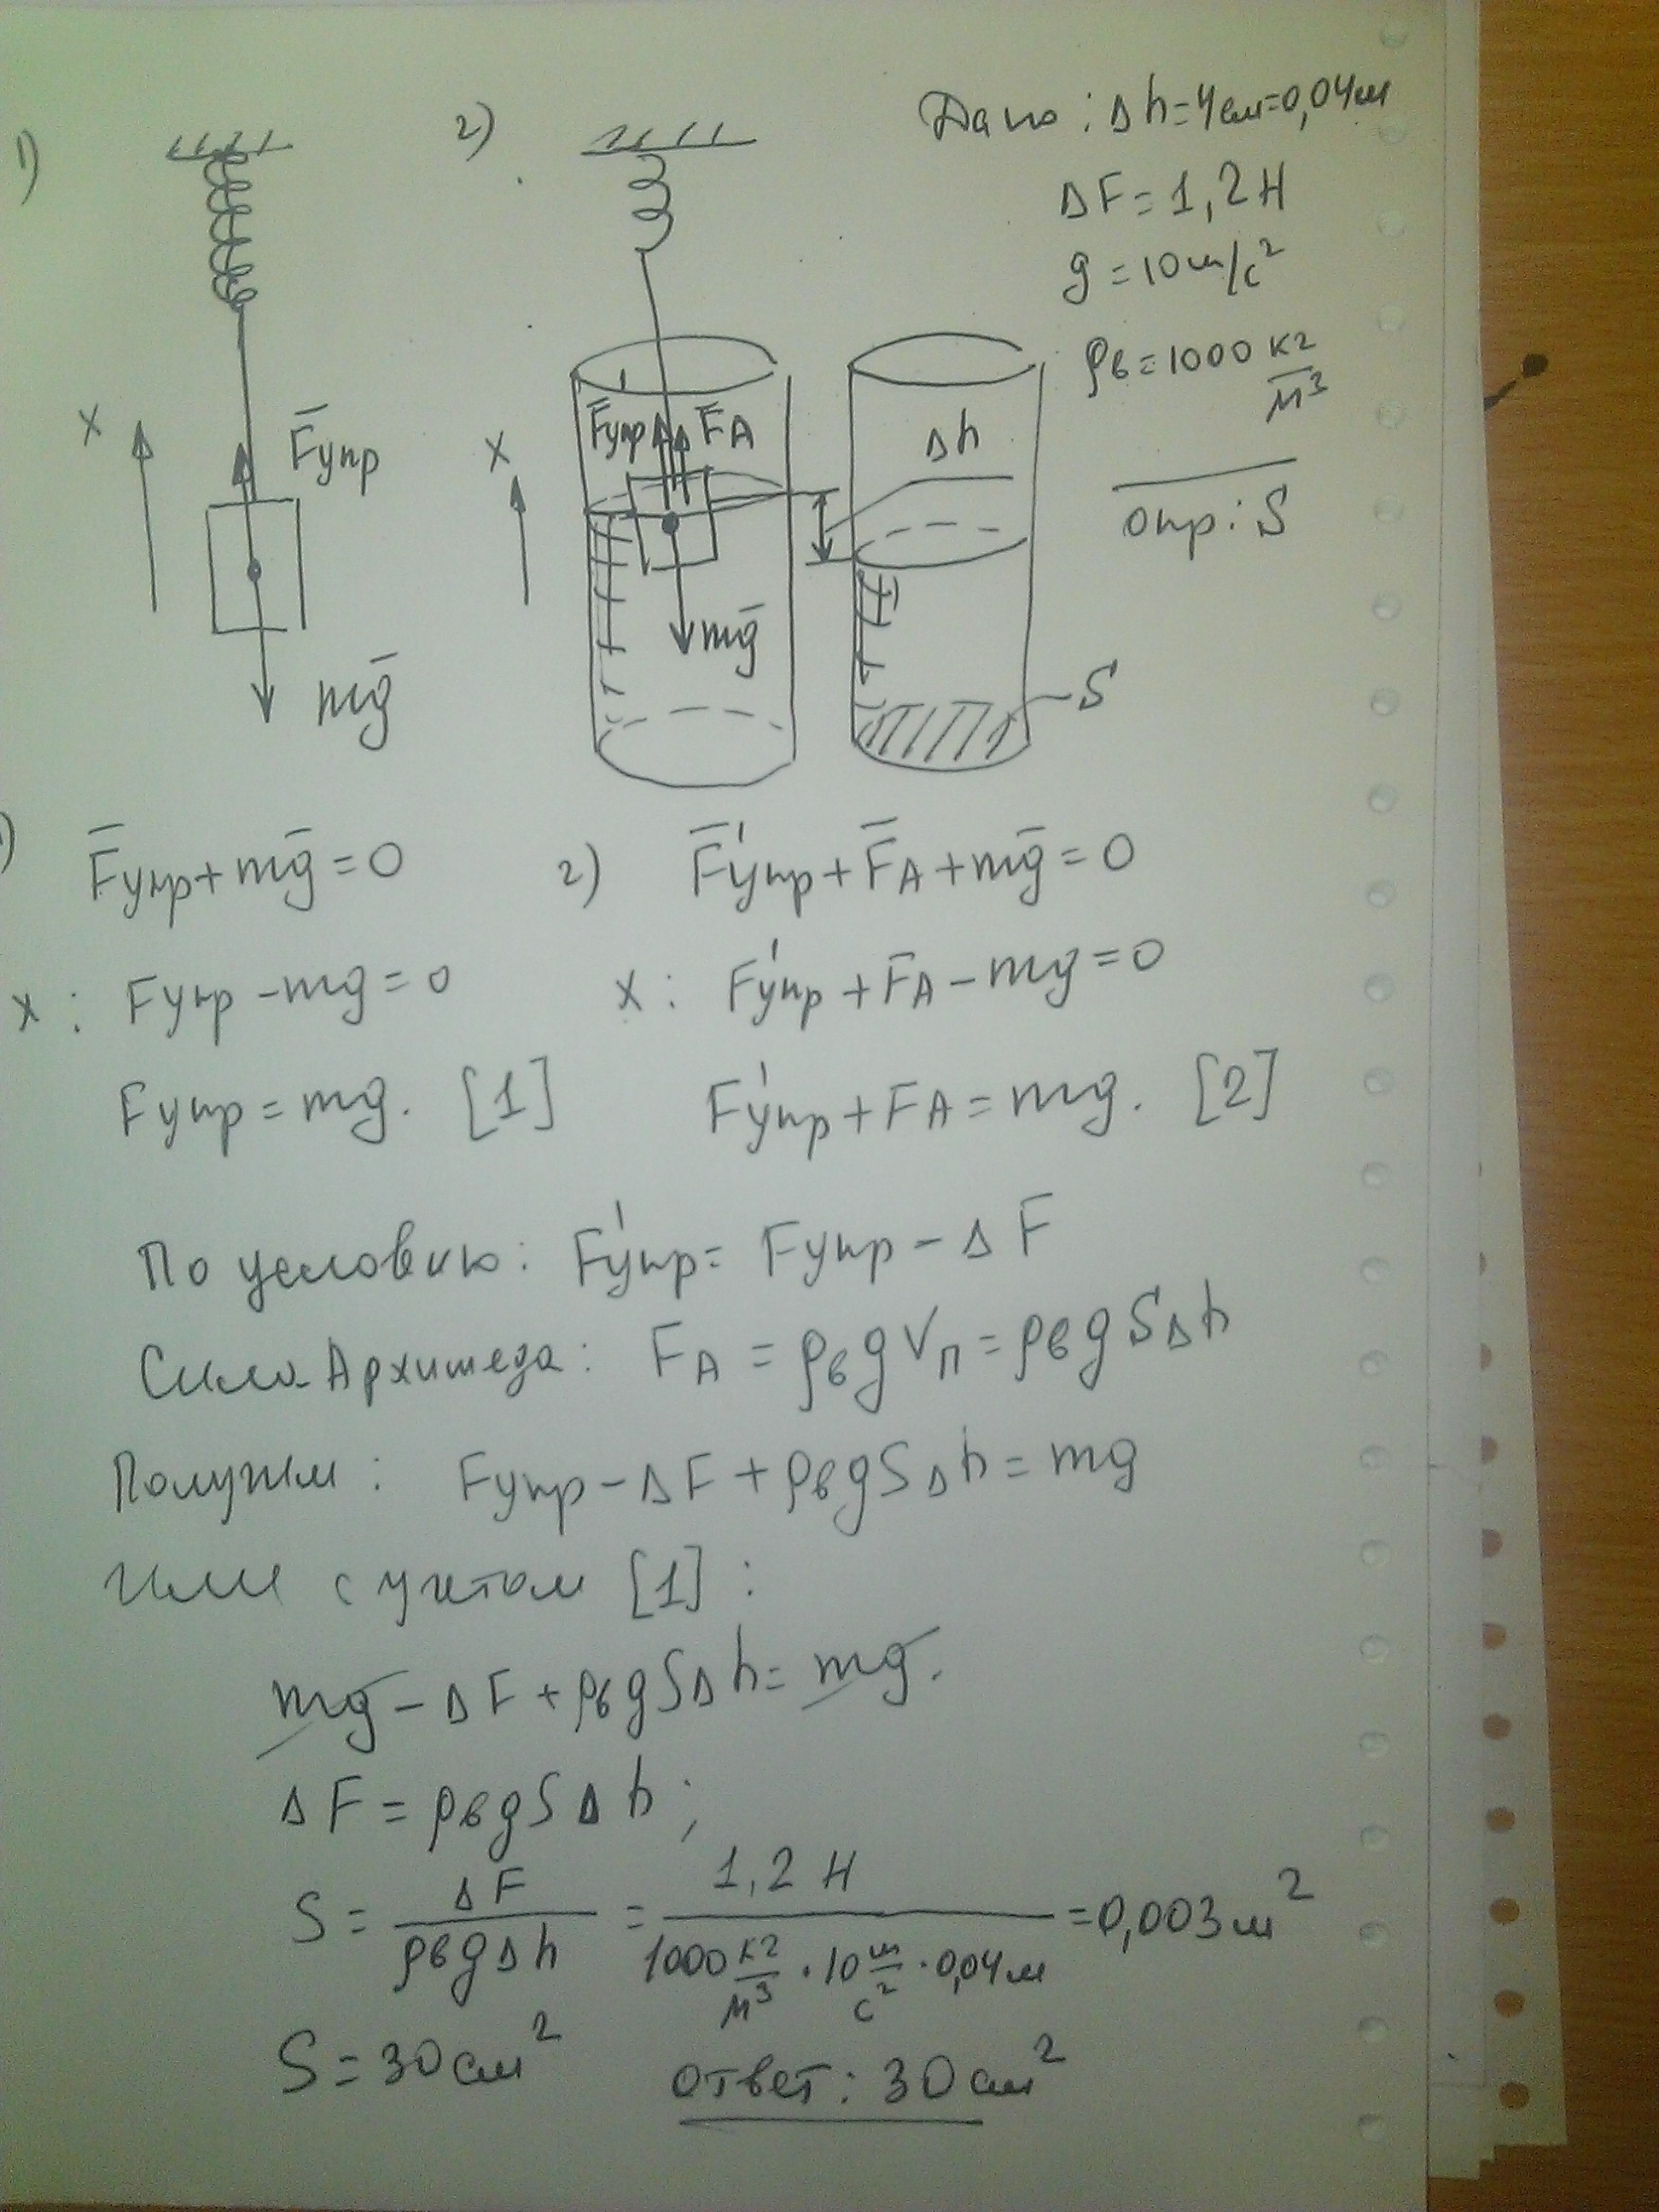 1)
2)
Дано: Δh=4см=0,04м
ΔF=1,2Н
g=10м/с²
ρв=1000 кг/м³
опр: S
x
F̅упр
mg̅
x
F̅упр F̅A
mg̅
Δh
S
1) F̅упр+mg̅=0
x: Fупр-mg=0
Fупр=mg. [1]
2) F̅'упр+F̅A+mg̅=0
x: F'упр+FA-mg=0
F'упр+FA=mg. [2]
По условию: F'упр=Fупр-ΔF
Сила Архимеда: FA=ρвgVп=ρвgSΔh
Получим: Fупр-ΔF+ρвgSΔh=mg
Или с учетом [1]:
mg-ΔF+ρвgSΔh=mg.
ΔF=ρвgSΔh;
S=ΔF/ρвgΔh=1,2Н/1000 кг/м³·10 м/с²·0,04м=0,003м²
S=30см²
ответ: 30см²